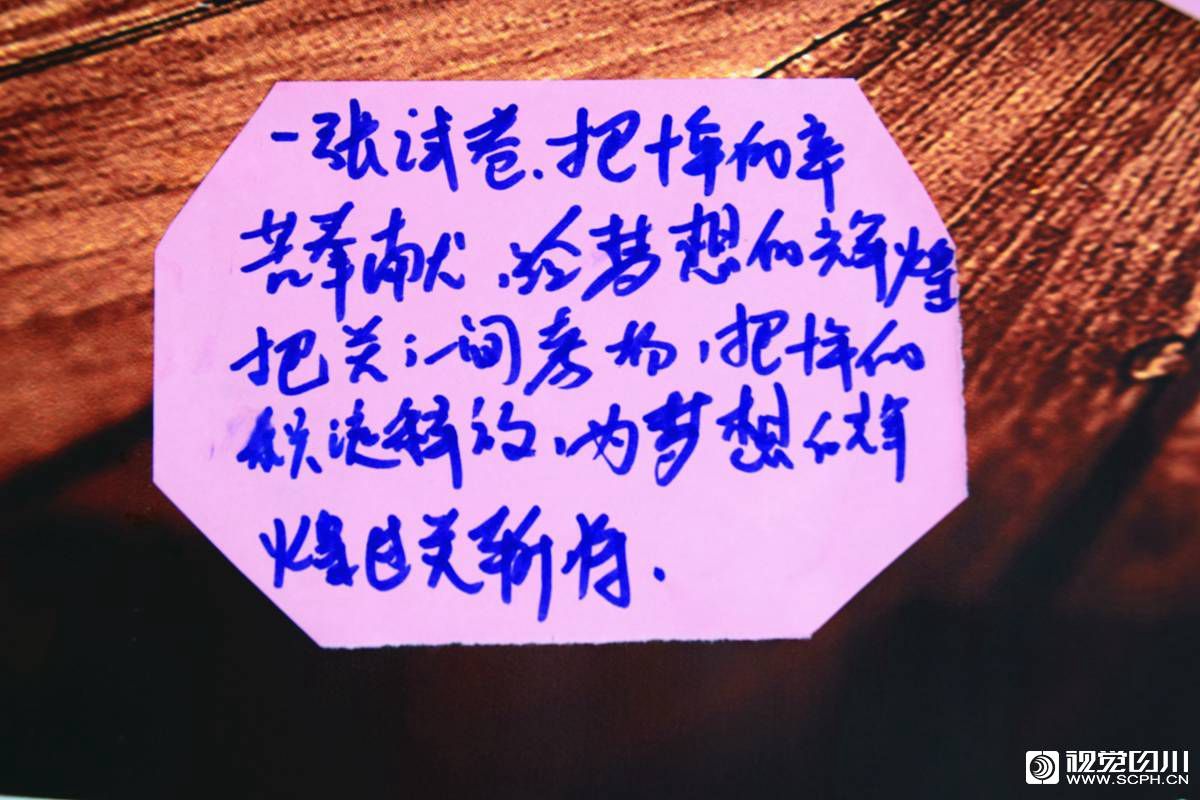 一张试卷、把十年的辛
苦奉献、给梦想的辉煌
把关；一间考场，把十年的
积淀释放，为梦想的辉
煌过关斩将．
视觉四川
WWW.SCPH.CN